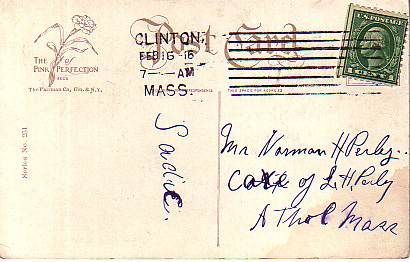 THE PINK of PERFECTION
Post Card
CLINTON,
FEB 16 16
7 - AM
MASS.
THIS SPACE FOR ADDRESS
U.S. POSTAGE
1 CENT 1
Series No. 231
Sadie.
Mr Norman H Perley.
Care of L. H. Perley
Athol Mass